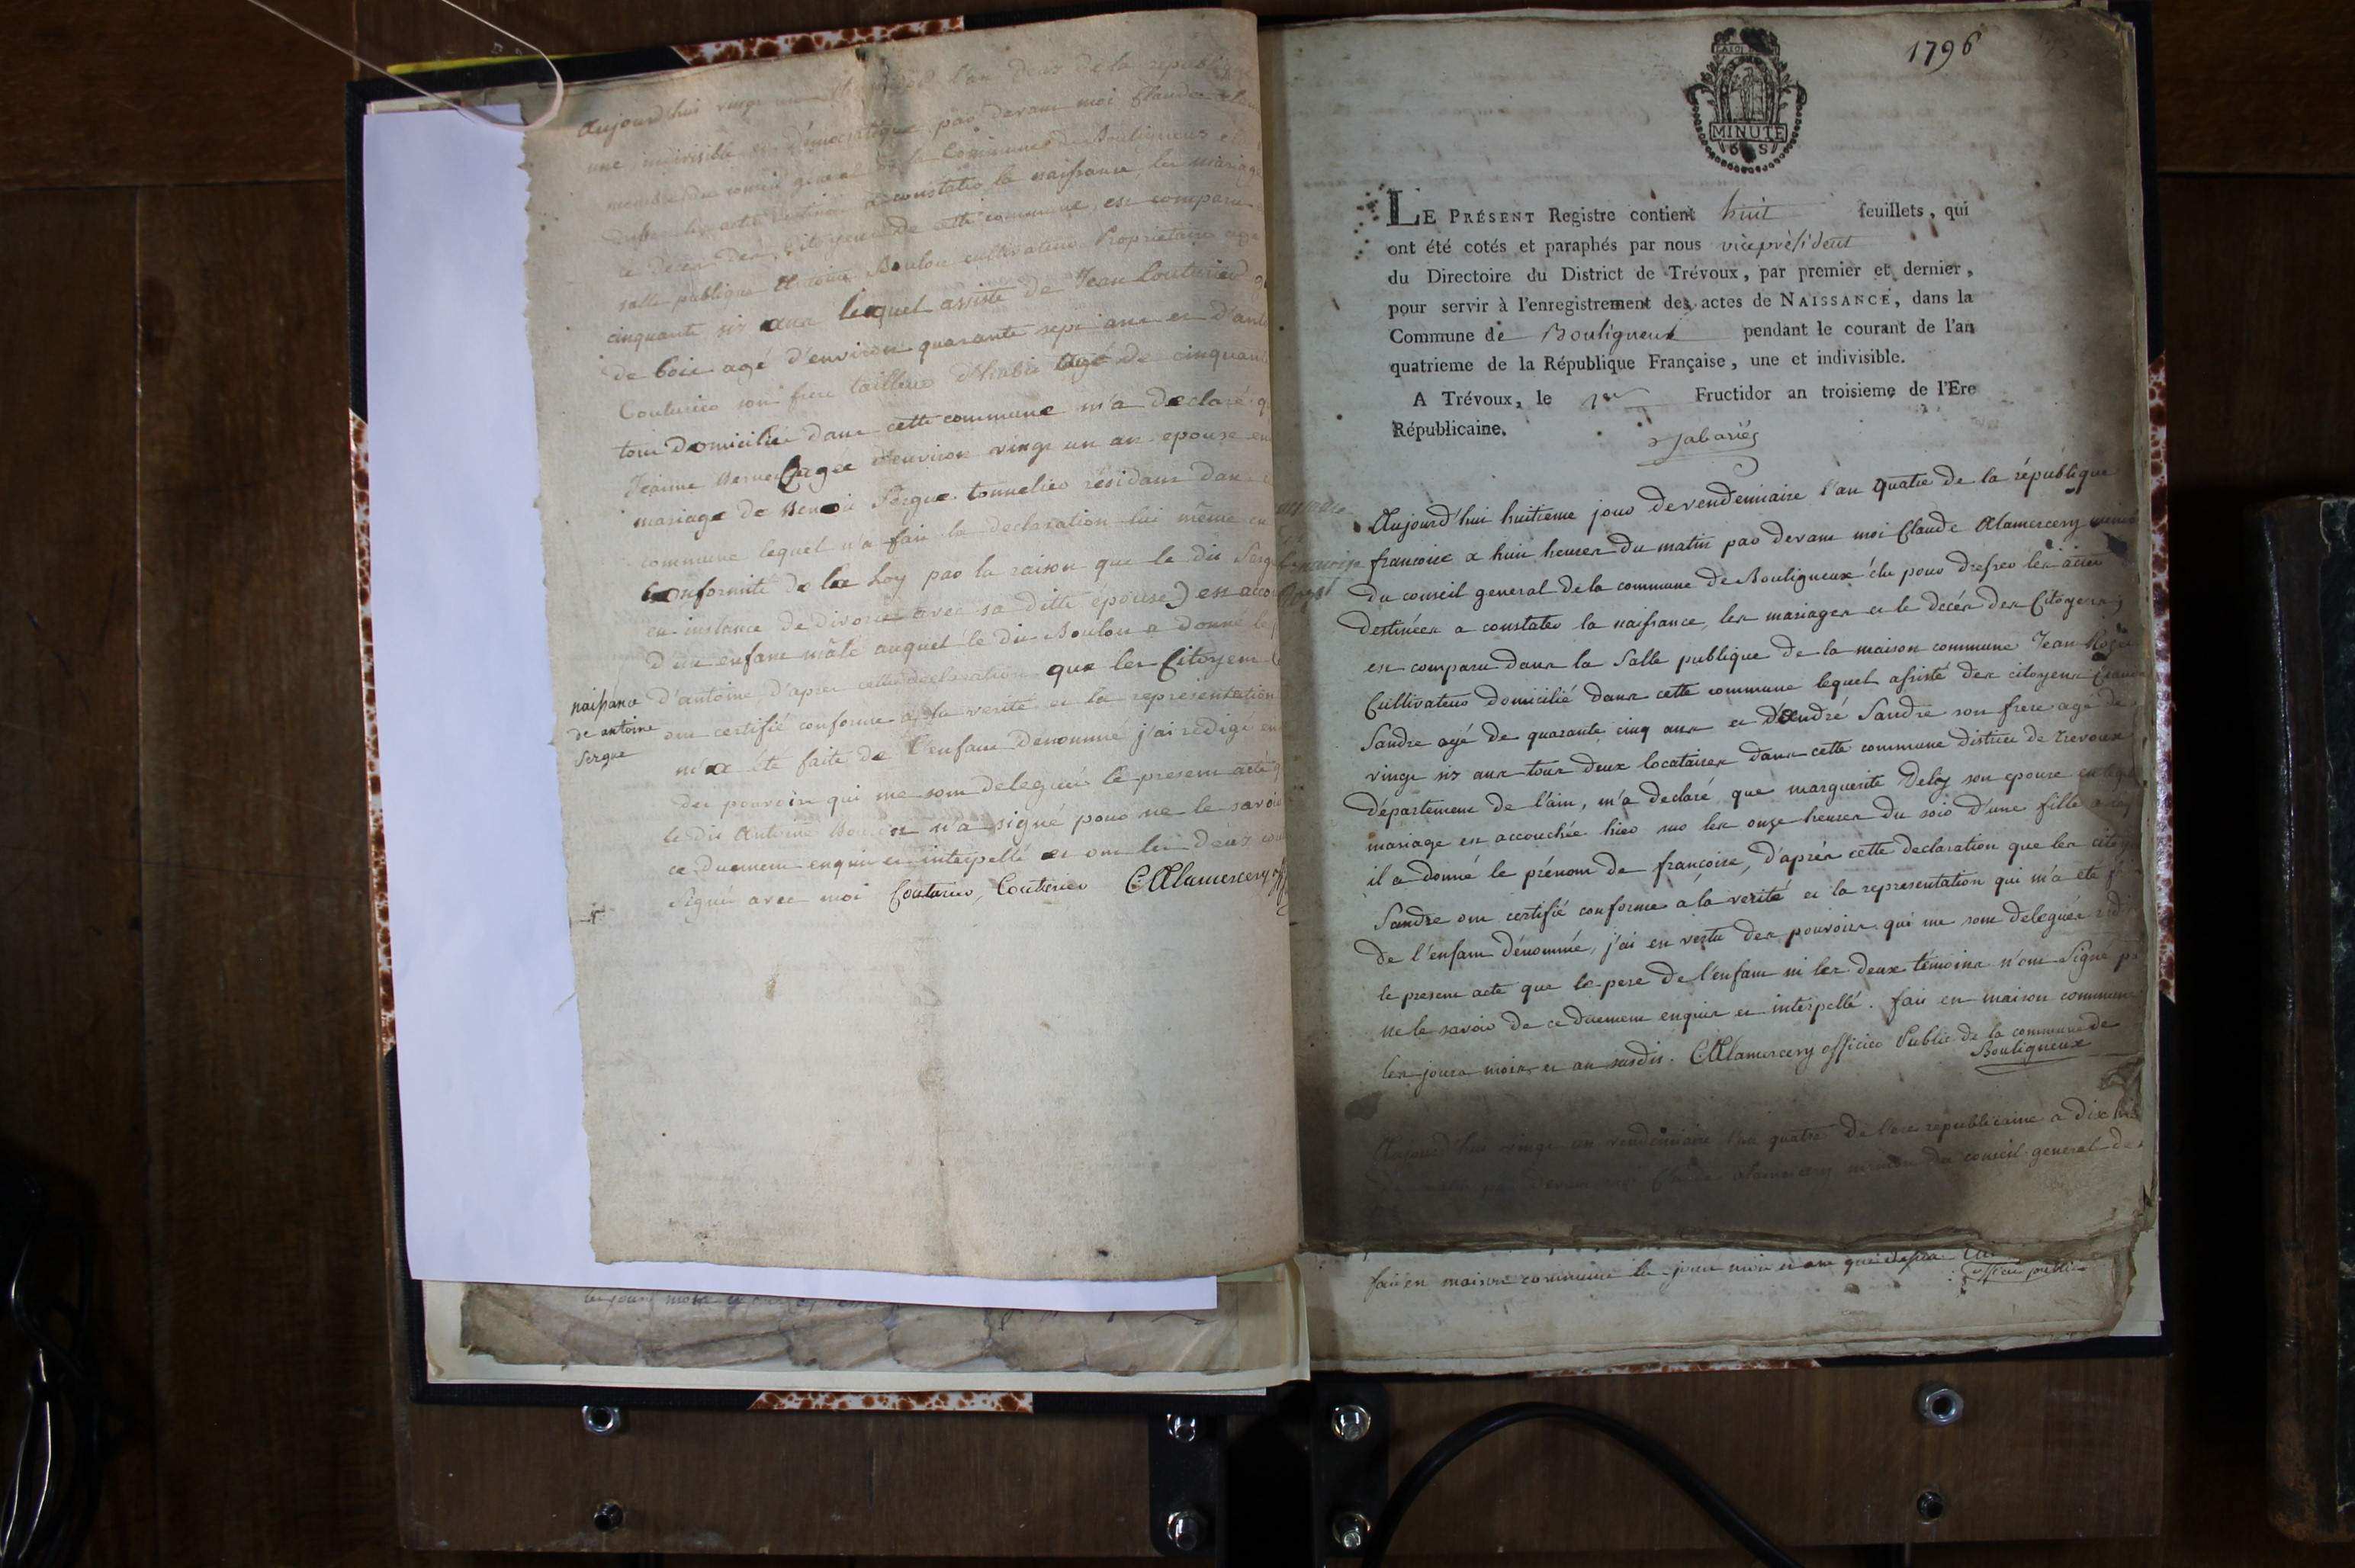 Aujourd'hui vingt l'an deux de la republique
une indivisible et démocratique par devant moi Claude
membre du conseil general de la Commune de Bouligneux
les actes destinés a constater la naissance, les mariages
le décès des citoyens de cette commune, est comparu
salle publique Antoine Boulon cultivateur Propriétaire agé
cinquante six ans lequel assisté de Jean Couturier
de bois agé d'environ quarante sept ans et d'ant
Couturier son frere tailleur d'habit agé de cinquant
tous domiciliés dans cette commune m'a declaré q
Jeanne agée d'environ vingt un an epouse en
mariage de Benoit Sergue tonnelier résidant dans
commune lequel n'a fait la declaration lui même en
Conformité de la Loy par la raison que le dit Serg
en instance de divorce avec sa ditte épouse) est accou
d'un enfant mâle auquel le dit Boulon a donné le
naissance
de antoine
Sergue
d'antoine, d'après cette declaration que les Citoyens
ont certifié conforme a la verité et la representation
m'a été faite de l'enfant denommé j'ai rédigé en
des pouvoirs qui me sont delegués le present acte q
le dit Antoine Boulon n'a signé pour ne le savoir
ce duement enquis et interpellé et ont les deux
Signé avec moi Couturier, Couturier C Alamercery off
1796
MINUTE
LE PRÉSENT Registre contient huit feuillets, qui
ont été cotés et paraphés par nous viceprésident
du Directoire du District de Trévoux, par premier et dernier,
pour servir à l'enregistrement des actes de NAISSANCE, dans la
Commune de Bouligneux pendant le courant de l'an
quatrieme de la République Française, une et indivisible.
A Trévoux, le 1er Fructidor an troisieme de l'Ere
Républicaine.
Aujourd'hui huitieme jour de vendemiaire l'an quatre de la république
francoise a huit heures du matin par devant moi Claude Alamercery
du conseil general de la commune de Bouligneux élu pour dresser les actes
destinées a constater la naissance, les mariages et le decés des Citoyens
est comparu dans la Salle publique de la maison commune Jean
Cultivateur domicilié dans cette commune lequel assisté des citoyens
Sandre agé de quarante cinq ans et d'andré Sandre son frere agé de
vingt six ans tous deux locataires dans cette commune district de trevoux
département de l'ain, m'a declaré que marguerite Deloy son epouse en
mariage est accouchée hier sur les onze heures du soir d'une fille a
il a donné le prénom de françoise, d'après cette declaration que les citoy
Sandre ont certifié conforme a la verité et la representation qui m'a été f
de l'enfant dénommé, j'ai en vertu des pouvoirs qui me sont delegués redi
le present acte que le pere de l'enfant ni les deux témoins n'ont Signé p
ne le savoir de ce duement enquis et interpellé. fait en maison commune
les jours mois et an susdit. C Alamercery officier Public de la commune de
Bouligneux
Aujourd'hui vingt un vendemiaire l'an quatre de l'ere republicaine a dix
par devant moi Claude alamercery membre du conseil general de
fait en maison commune les jour mois et an que dessus
officier public